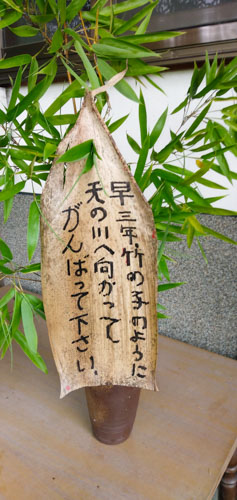 早三年、竹の子のように
天の川へ向かって
がんばって下さい